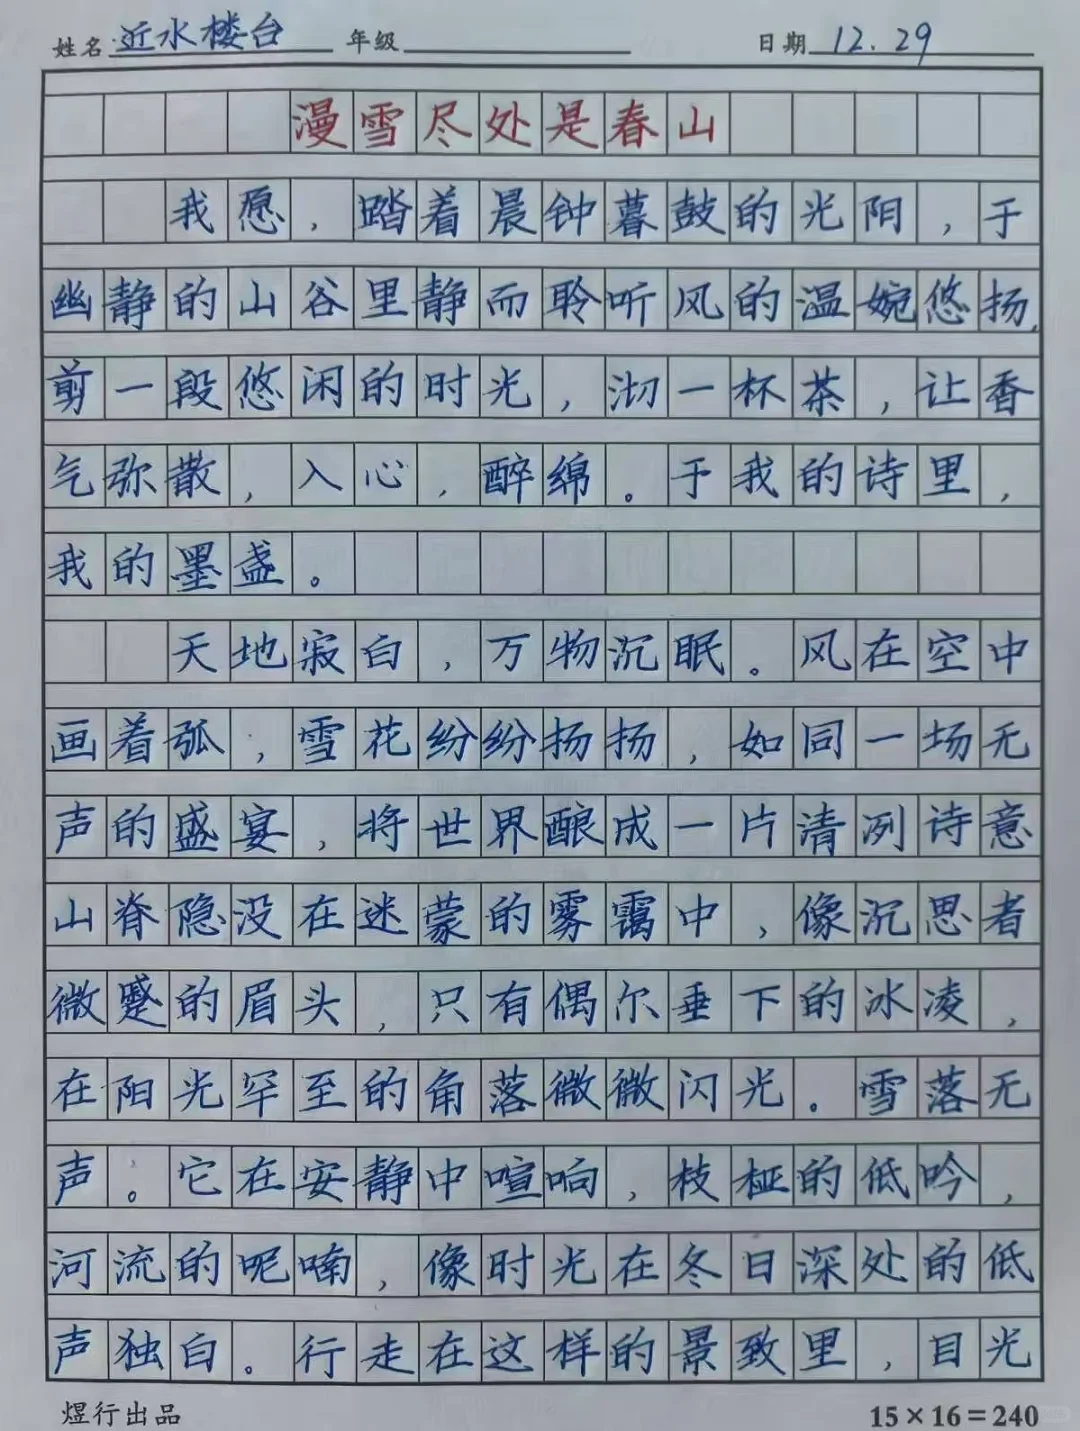 姓名 近水楼台 年级 日期 12.29
漫雪尽处是春山
我愿，踏着晨钟暮鼓的光阳，于
幽静的山谷里静而聆听风的温婉悠扬，
剪一段悠闲的时光，沏一杯茶，让香
气弥散，入心，醉绵。于我的诗里，
我的墨盏。
天地寂白，万物沉眠。风在空中
画着弧，雪花纷纷扬扬，如同一场无
声的盛宴，将世界酿成一片清冽诗意
山脊隐没在迷蒙的雾霭中，像沉思者
微蹙的眉头，只有偶尔垂下的冰凌，
在阳光罕至的角落微微闪光。雪落无
声。它在安静中喧响，枝桠的低吟，
河流的呢喃，像时光在冬日深处的低
声独白。行走在这样的景致里，目光
煜行出品 15×16=240